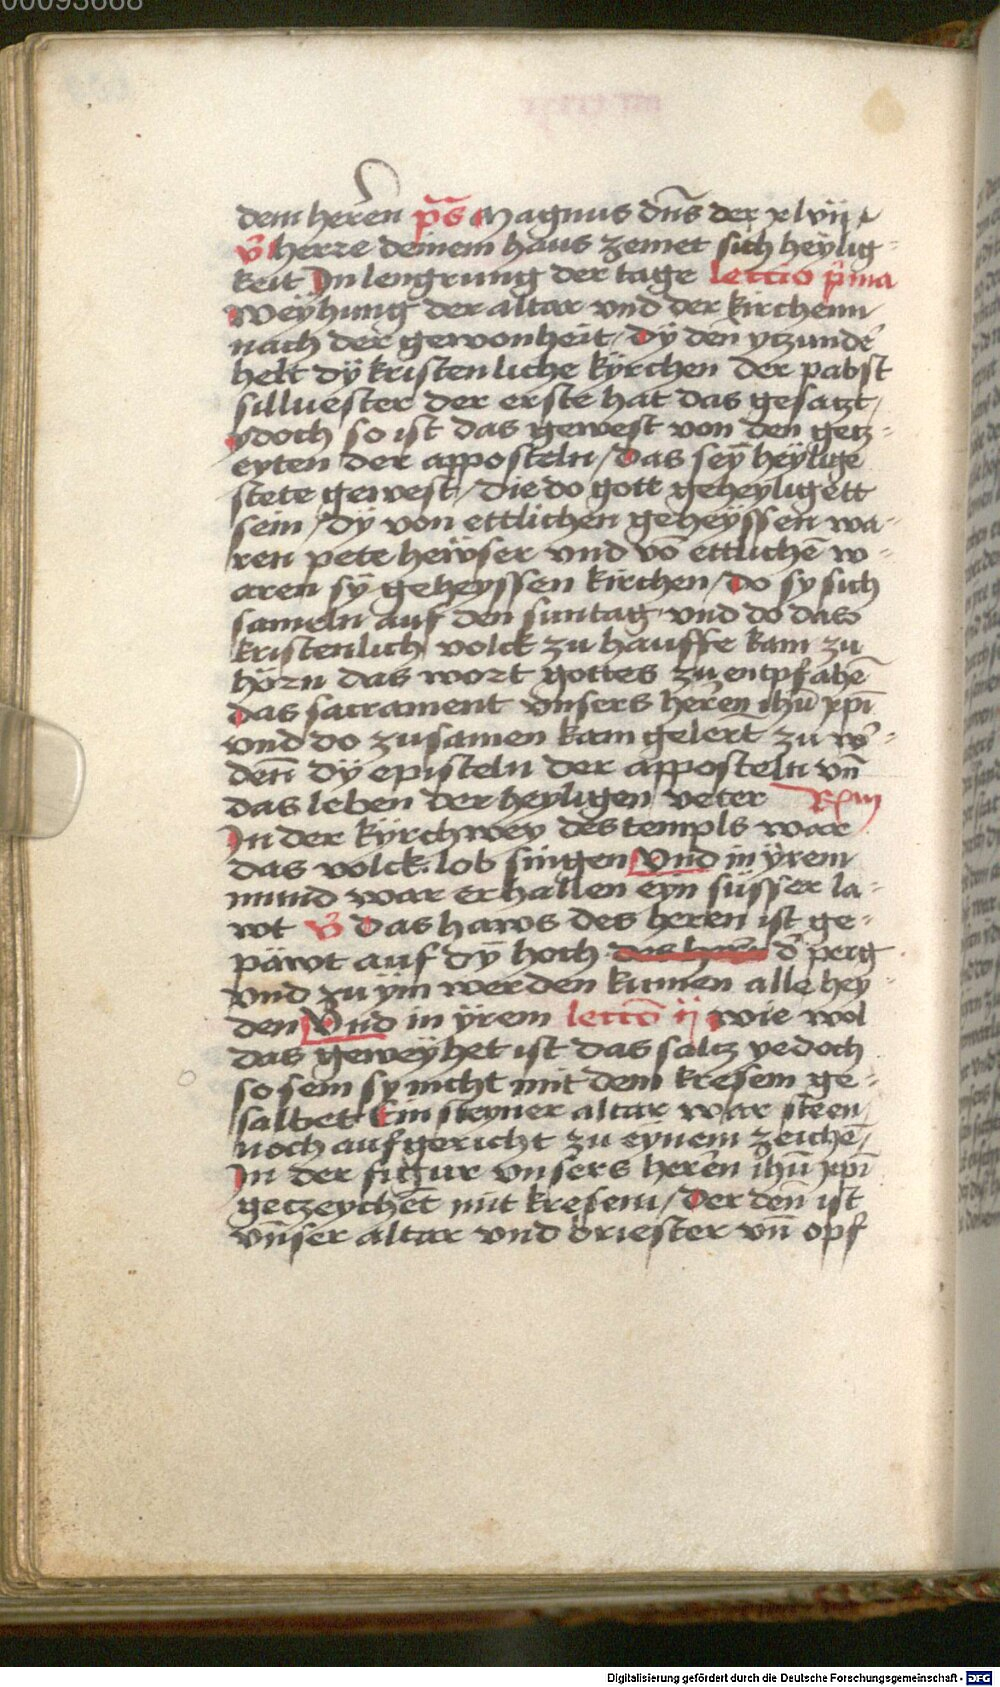 00093668
dem herren ps̄ Magnus dn̄s der xlvij
v̄ herre deinem haus zemet sich heylig-
keit In lengrung der tage lectio p̄ma
Weyhung der altar vnd der kirchenn
nach der gewonheit, dÿ den ytzunder̄
helt dÿ kristenliche kÿrchen der pabst
silluester der erste hat das gesatzt,
ydoch so ist das gewest von den getz-
eyten der apposteln, das seȳ heÿlige
stete gewest, die do gott geheyligett
sein, dÿ von ettlichen geheÿssen wa-
ren pete heẅser vnd vō ettlichē w-
aren sÿ geheyssen kirchen, do sy sich
sameln auf den suntag vnd do das
kristenlich volck zu hauffe kam zu
hörn das wort gottes zu entpfahē
das sacrament vnsers herēn ih̄u xp̄i
vnd do zusamen kam gelert zu w̄-
den̄ dÿ episteln der apposteln vn̄
das leben der heyligen veter Rm
In der kÿrchwey des templs war
das volck lob singen Vnd in ÿrem
mund war erhallen eyn süsser la-
wt v̄ Das haws des herēn ist ge-
päwt auf dÿ hoch das haws d̄ perg
vnd zu ÿm werden kumen alle hey-
den Vnd in ÿrem lectō ij wie wol
das geweÿhet ist das saltz yedoch
so sein sy nicht mit dem kresem ge-
salbet Ein steyner altar war steen
noch aufgericht zu eynem zeichē,
In der figur vnsers herēn ih̄u xp̄i
getzeychēt mit kresem, der den̄ ist
vn̄ser altar vnd briester vn̄ opf
Digitalisierung gefördert durch die Deutsche Forschungsgemeinschaft - DFG